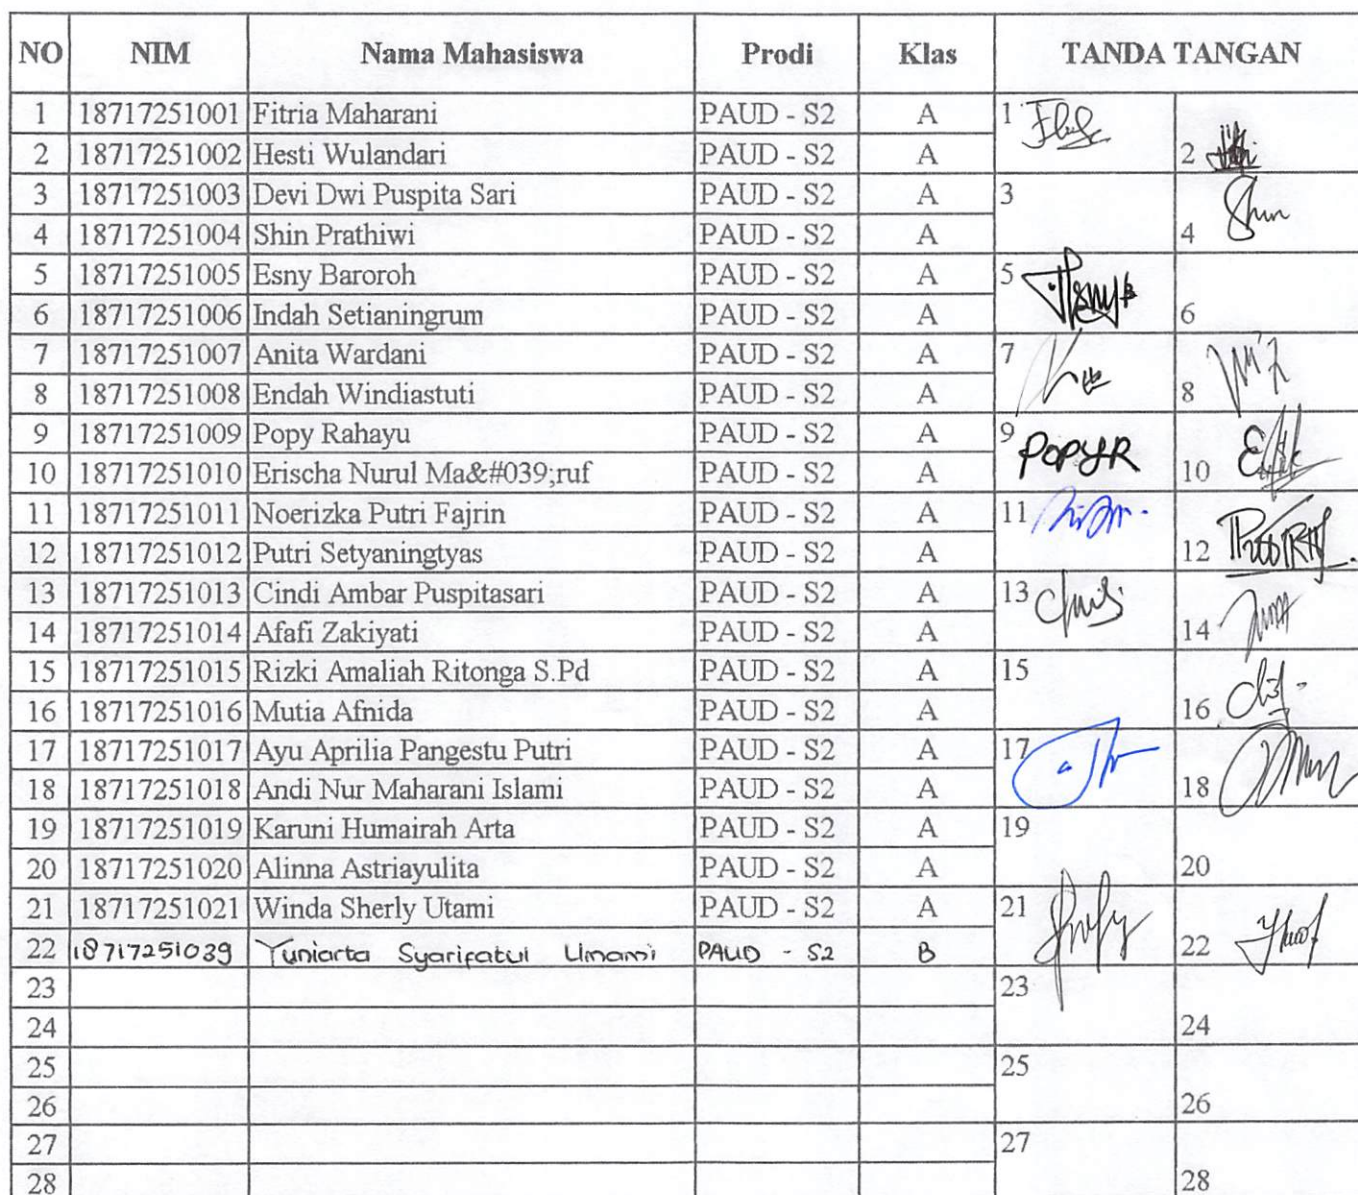 NO NIM Nama Mahasiswa Prodi Klas TANDA TANGAN
1 18717251001 Fitria Maharani PAUD - S2 A 1
2 18717251002 Hesti Wulandari PAUD - S2 A 2
3 18717251003 Devi Dwi Puspita Sari PAUD - S2 A 3
4 18717251004 Shin Prathiwi PAUD - S2 A 4 Shin
5 18717251005 Esny Baroroh PAUD - S2 A 5
6 18717251006 Indah Setianingrum PAUD - S2 A 6
7 18717251007 Anita Wardani PAUD - S2 A 7
8 18717251008 Endah Windiastuti PAUD - S2 A 8
9 18717251009 Popy Rahayu PAUD - S2 A 9 POPY.R
10 18717251010 Erischa Nurul Ma&#039;ruf PAUD - S2 A 10
11 18717251011 Noerizka Putri Fajrin PAUD - S2 A 11
12 18717251012 Putri Setyaningtyas PAUD - S2 A 12
13 18717251013 Cindi Ambar Puspitasari PAUD - S2 A 13
14 18717251014 Afafi Zakiyati PAUD - S2 A 14
15 18717251015 Rizki Amaliah Ritonga S.Pd PAUD - S2 A 15
16 18717251016 Mutia Afnida PAUD - S2 A 16
17 18717251017 Ayu Aprilia Pangestu Putri PAUD - S2 A 17
18 18717251018 Andi Nur Maharani Islami PAUD - S2 A 18
19 18717251019 Karuni Humairah Arta PAUD - S2 A 19
20 18717251020 Alinna Astriayulita PAUD - S2 A 20
21 18717251021 Winda Sherly Utami PAUD - S2 A 21
22 18717251039 Yuniarta Syarifatul Umami PAUD - S2 B 22
23 23
24 24
25 25
26 26
27 27
28 28